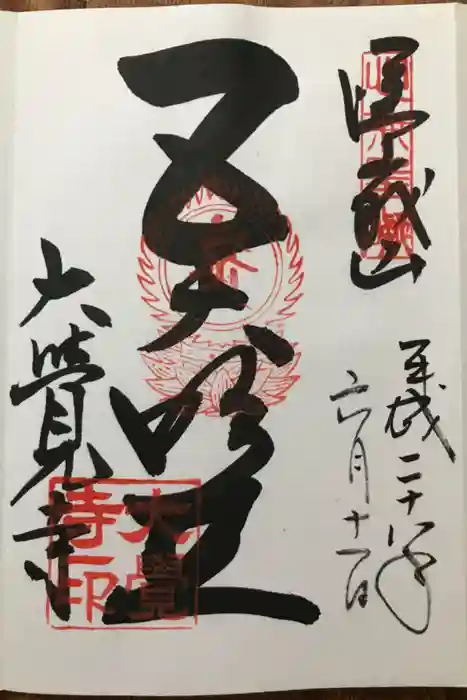 嵯峨山
平成二十八年
六月十一日
五大明王
大覺寺
大覺
寺印